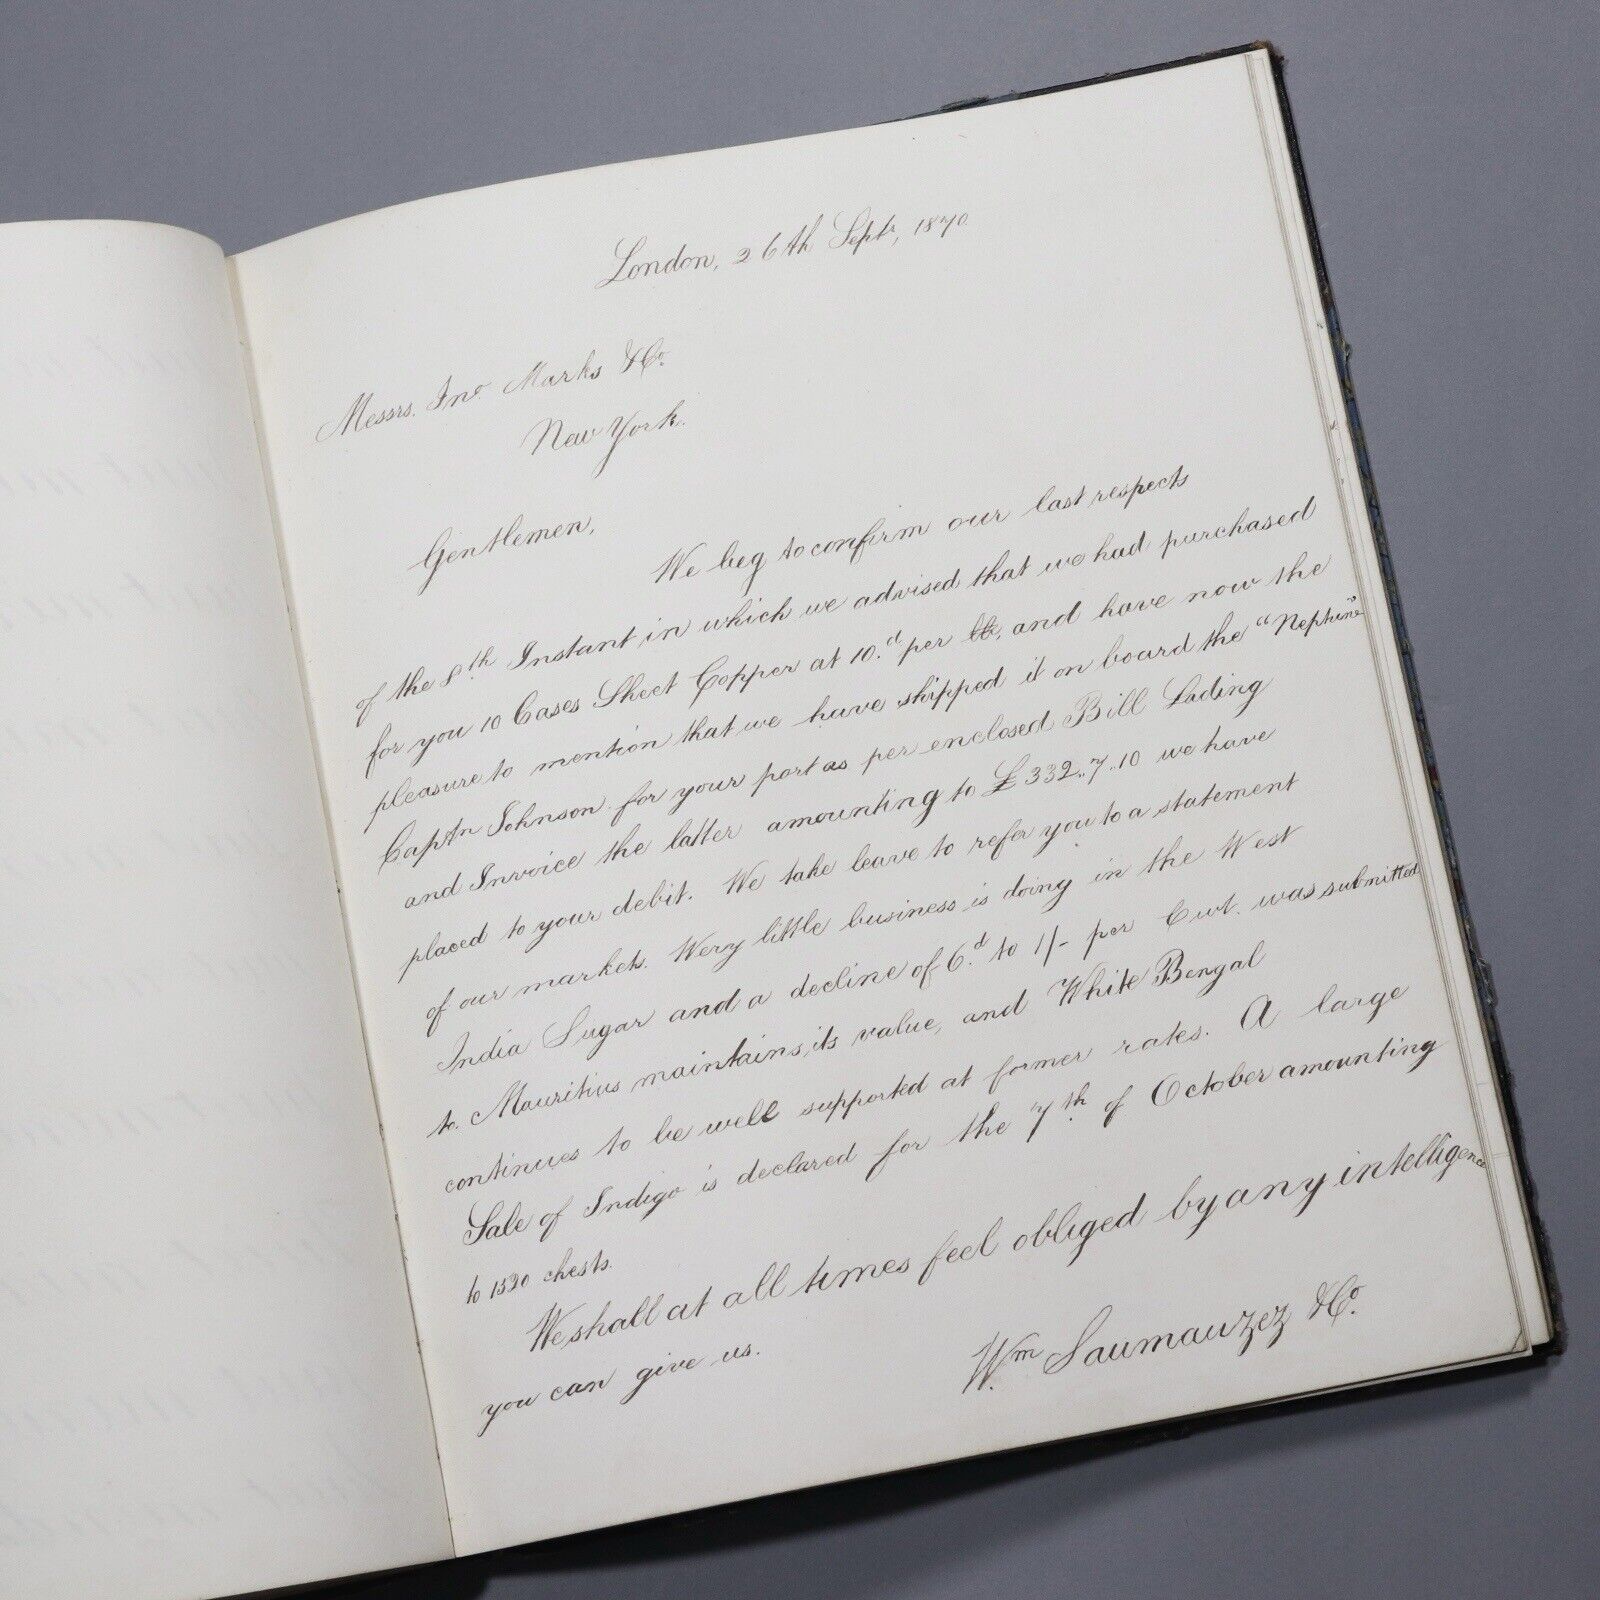 London, 26th Septr, 1870.
Messrs. Jno. Marks & Co.
New York.
Gentlemen,
We beg to confirm our last respects
of the 8th Instant in which we advised that we had purchased
for you 10 Cases Sheet Copper at 10.d per lb, and have now the
pleasure to mention that we have shipped it on board the "Neptune"
Captn Johnson for your port as per enclosed Bill Lading
and Invoice the latter amounting to £332..7..10 we have
placed to your debit. We take leave to refer you to a statement
of our markets. Wery little business is doing in the West
India Sugar and a decline of 6.d to 1/- per Cwt. was submitted
to. Mauritius maintains its value, and White Bengal
continues to be well supported at former rates. A large
Sale of Indigo is declared for the 7th of October amounting
to 1520 chests.
We shall at all times feel obliged by any intelligence
you can give us.
Wm Saumauzez & Co.